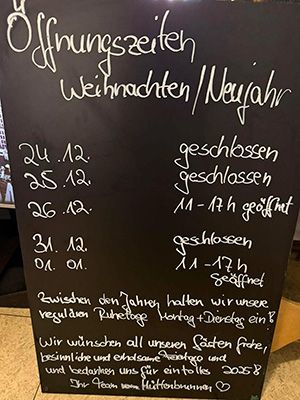 Öffnungszeiten
Weihnachten/Neujahr
24.12. geschlossen
25.12. geschlossen
26.12. 11-17h geöffnet
31.12. geschlossen
01.01. 11-17h
geöffnet
Zwischen den Jahren halten wir unsere
regulären Ruhetage Montag+Dienstag ein!
Wir wünschen all unseren Gästen frohe,
besinnliche und erholsame Feiertage und
und bedanken uns für ein tolles 2025!
Ihr Team vom Hüttenbrunnen ♡